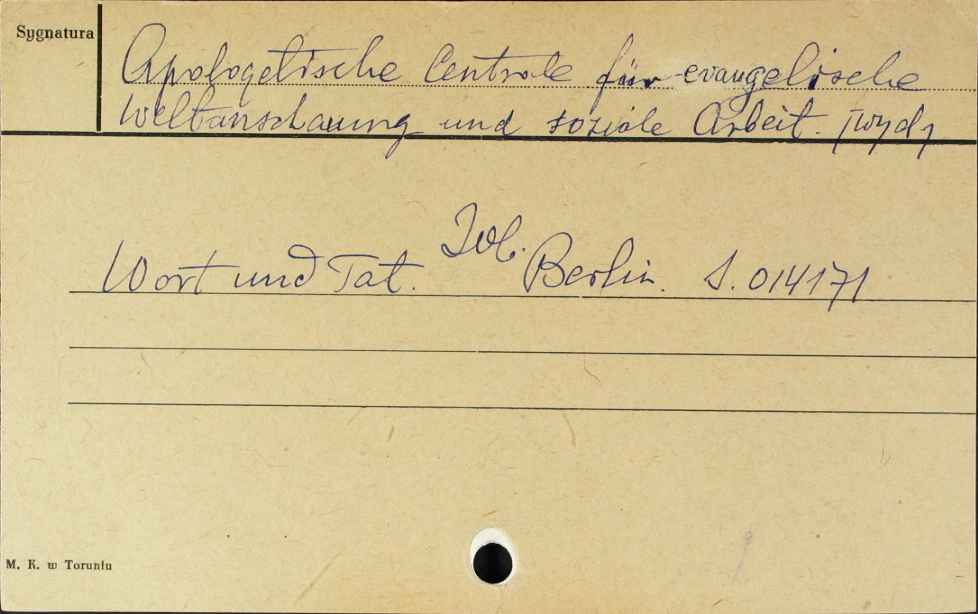 Sygnatura
Apologetische Centrale für evangelische
Weltanschauung und soziale Arbeit. [wyd]
Wort und Tat. Berlin. S. 014171
M. K. w Toruniu